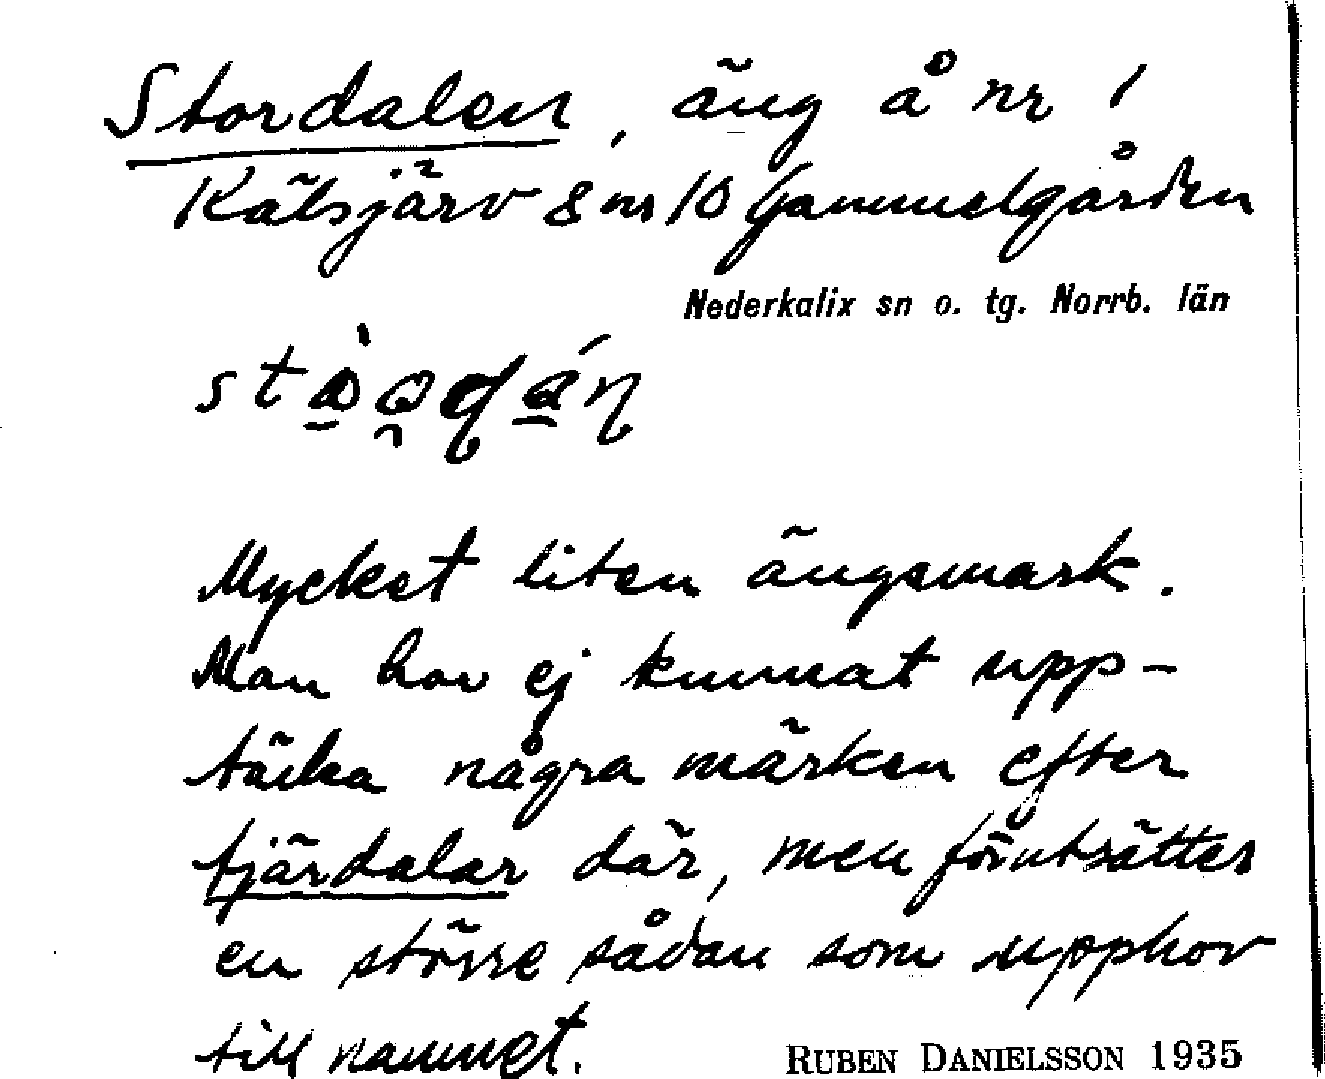 Stordalen, äng å nr 1
Kälsjärv & nr 10 Gammelgården
Nederkalix sn o. tg. Norrb. län
Mycket liten ängsmark.
Man har ej kunnat upp-
täcka några märken efter
tjärdalar där, men förutsättes
en större sådan som upphov
till namnet.
RUBEN DANIELSSON 1935